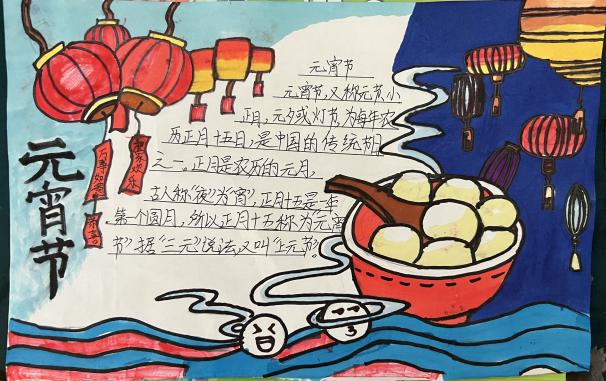 元宵节
元宵节
元宵节,又称元节、小
正月、元夕或灯节为每年农
历正月十五日,是中国的传统节
之一。正月是农历的元月,
古人称“夜”为“宵”,正月十五是一年
第一个圆月,所以正月十五称为“元宵
节”据“三元”说法又叫“上元节”。
万事如意
阖家欢乐